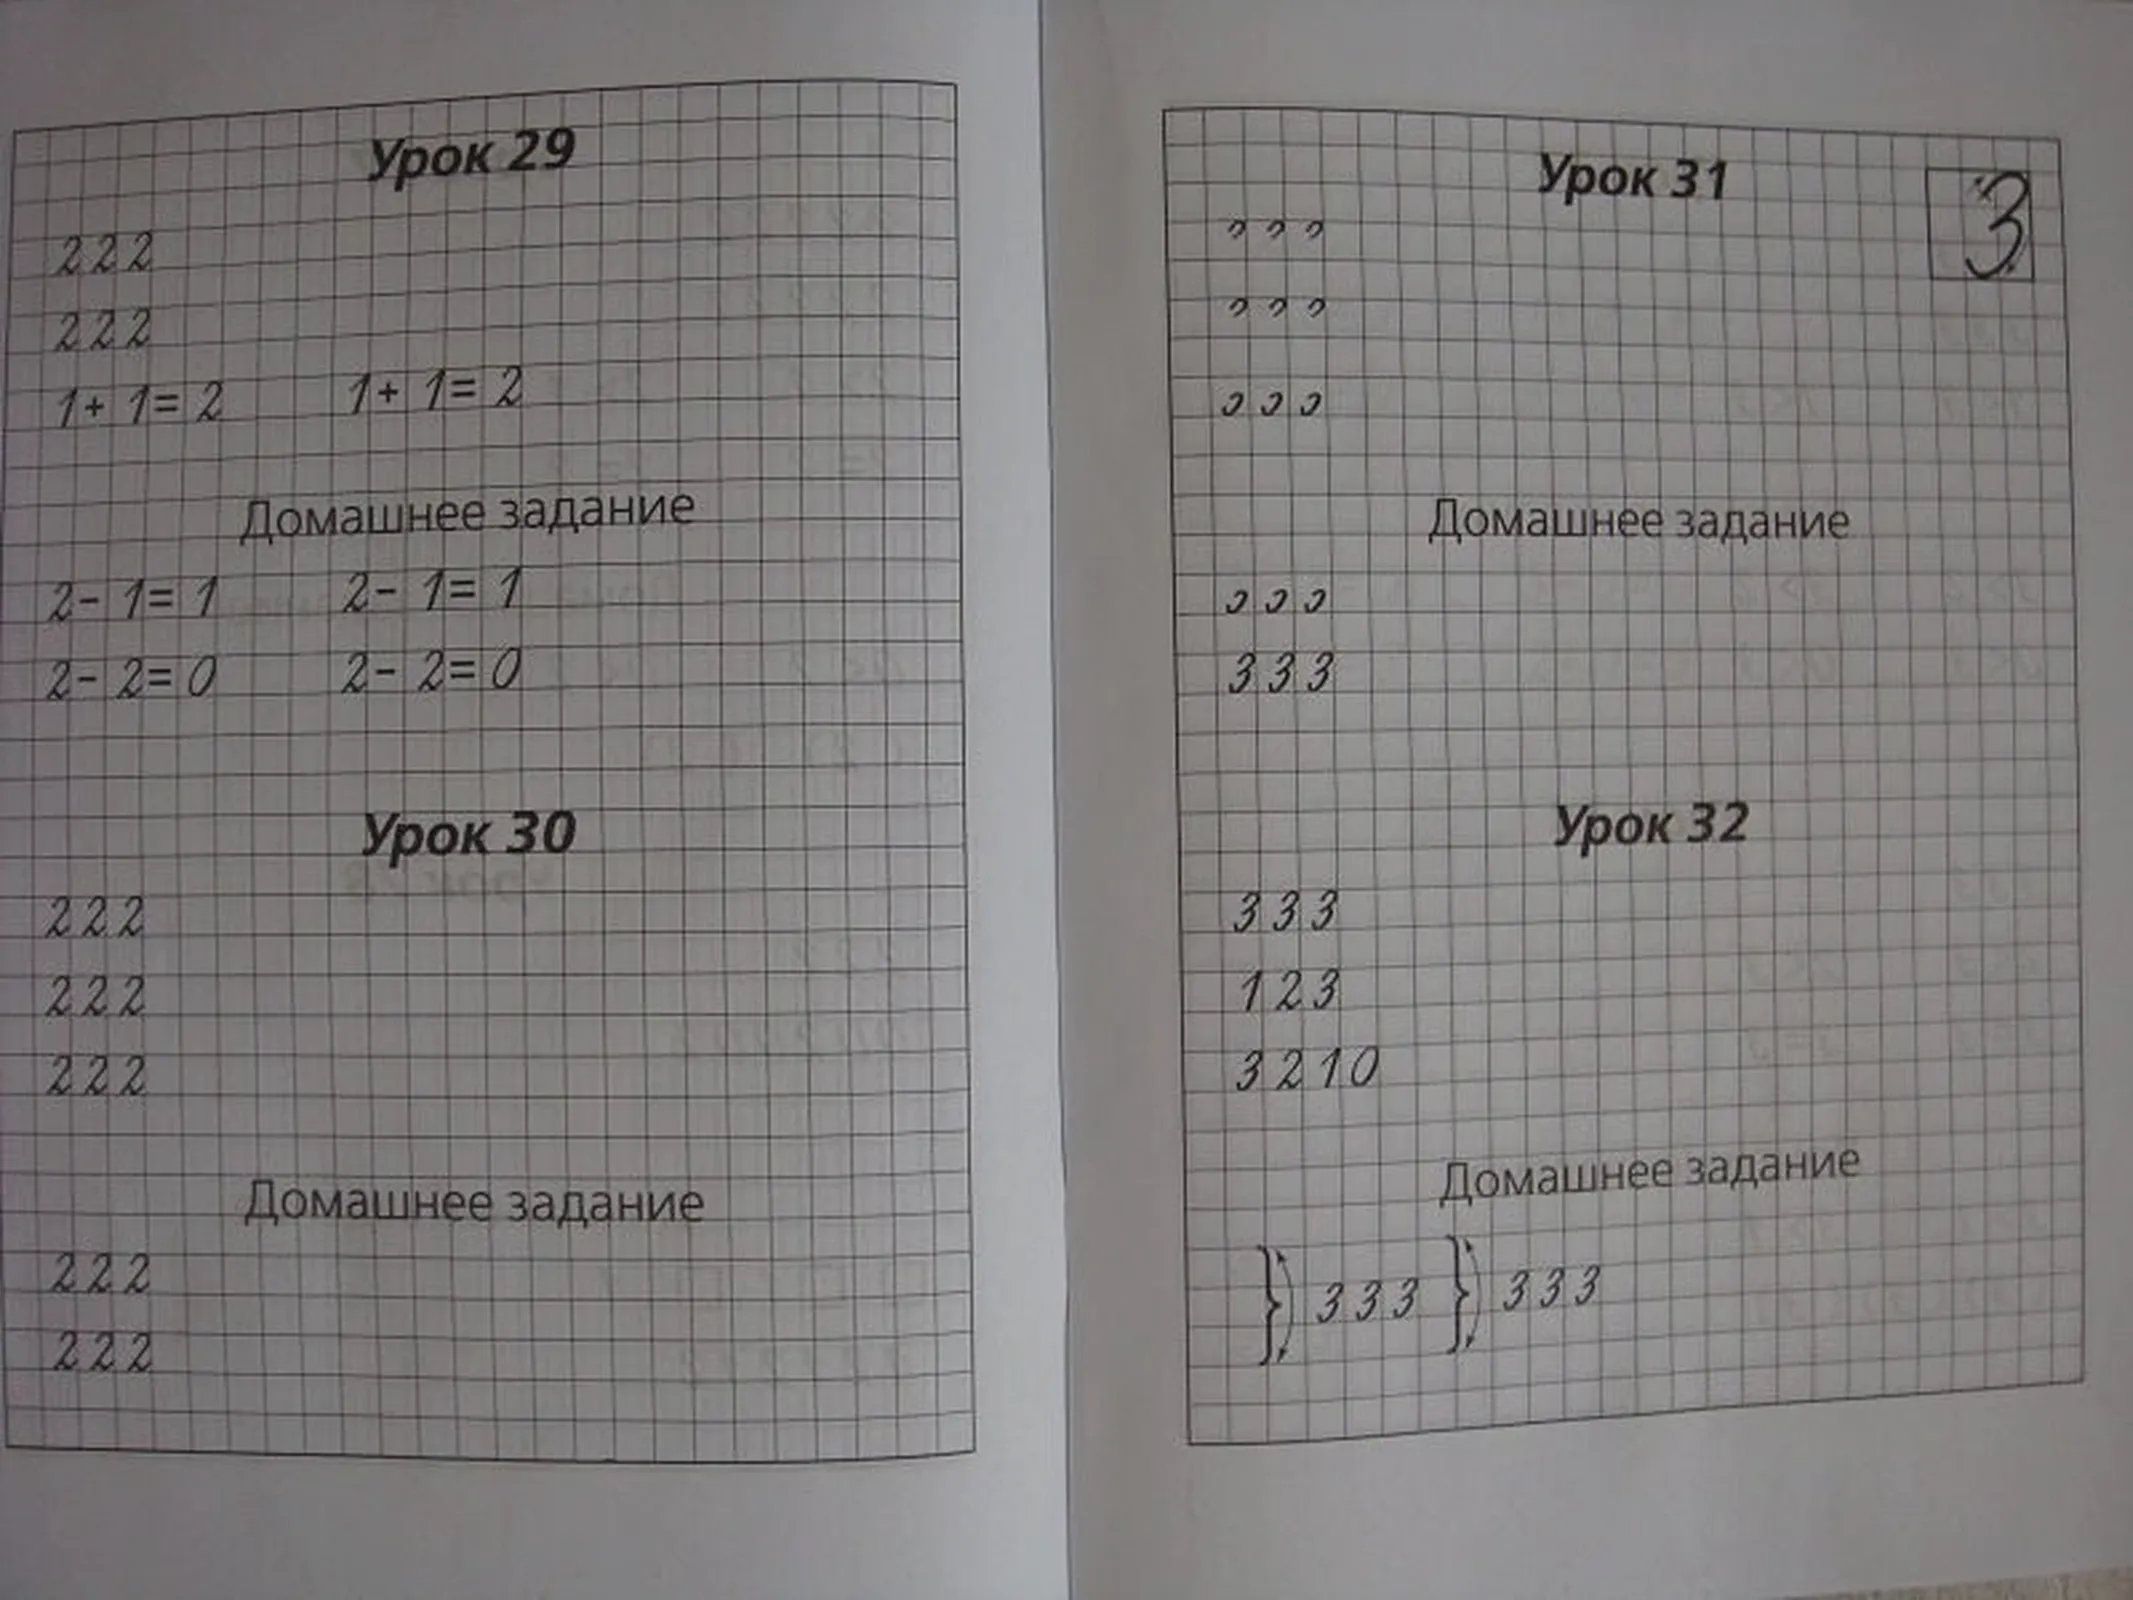 Урок 29
2 2 2
2 2 2
1 + 1 = 2 1 + 1 = 2
Домашнее задание
2 - 1 = 1 2 - 1 = 1
2 - 2 = 0 2 - 2 = 0
Урок 30
2 2 2
2 2 2
2 2 2
Домашнее задание
2 2 2
2 2 2
Урок 31
3
Домашнее задание
3 3 3
Урок 32
3 3 3
1 2 3
3 2 1 0
Домашнее задание
} 3 3 3 } 3 3 3